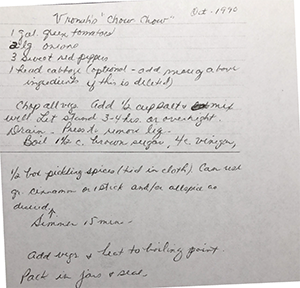 Vronah's "Chow Chow" Oct-1990
1 gal. green tomatoes
2 lg onions
3 sweet red peppers
1 head cabbage (optional - add more of above
ingredients if this is deleted)
Chop all vegs. Add ½ cup salt & mix
well. Let stand 3-4 hrs. or overnight.
Drain - Press to remove liq.
Boil 1½ c. brown sugar, 4 c. vinegar,
½ box pickling spices (tied in cloth). Can use
gr. cinnamon or 1 stick and/or allspice as
desired,
Simmer 15 min -
Add vegs & heat to boiling point.
Pack in jars & seal.